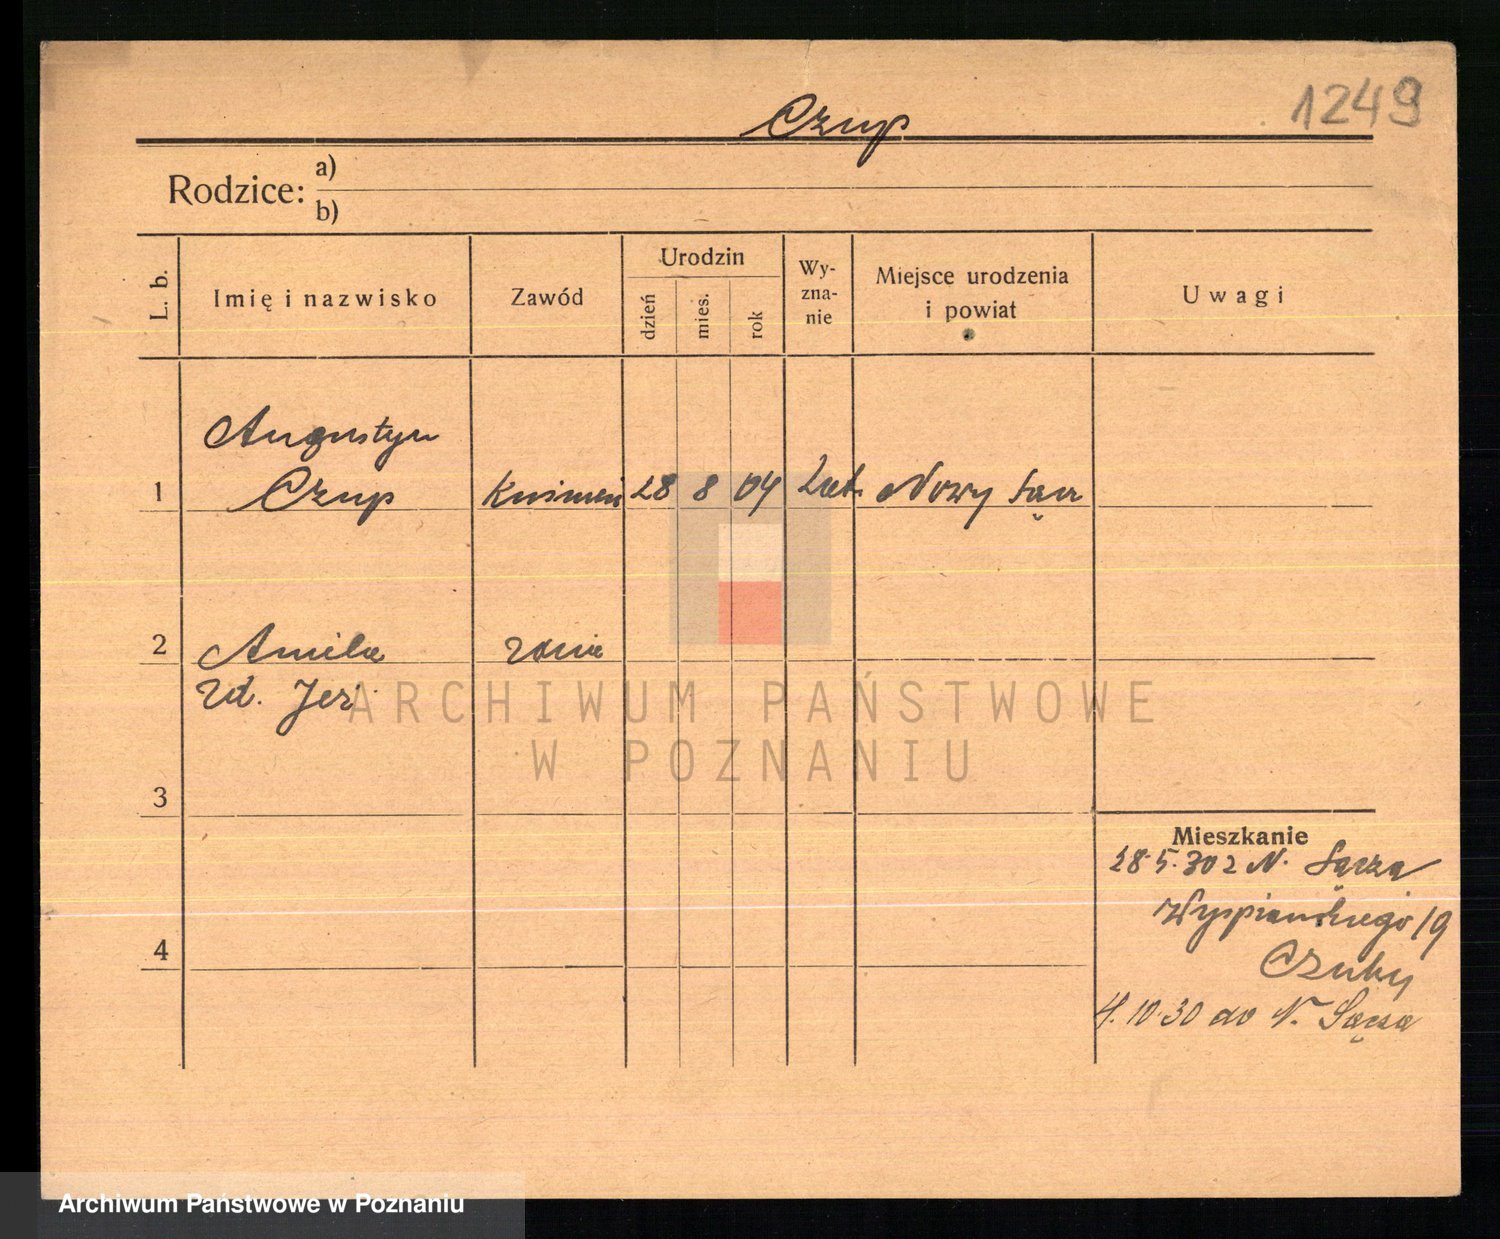 1249
Czup
Rodzice:
a)
b)
L. b.
Imię i nazwisko
Zawód
Urodzin
dzień
mies.
rok
Wy-
zna-
nie
Miejsce urodzenia
i powiat
Uwagi
Augustyn
1 Czup 28 8 04 Nowy Sącz
2 Amila żona
zd. Jez
3
4
Mieszkanie
28.5.30 z N. Sącza
Wyspiańskiego 19
4.10.30 do N. Sącza
ARCHIWUM PAŃSTWOWE
W POZNANIU
Archiwum Państwowe w Poznaniu